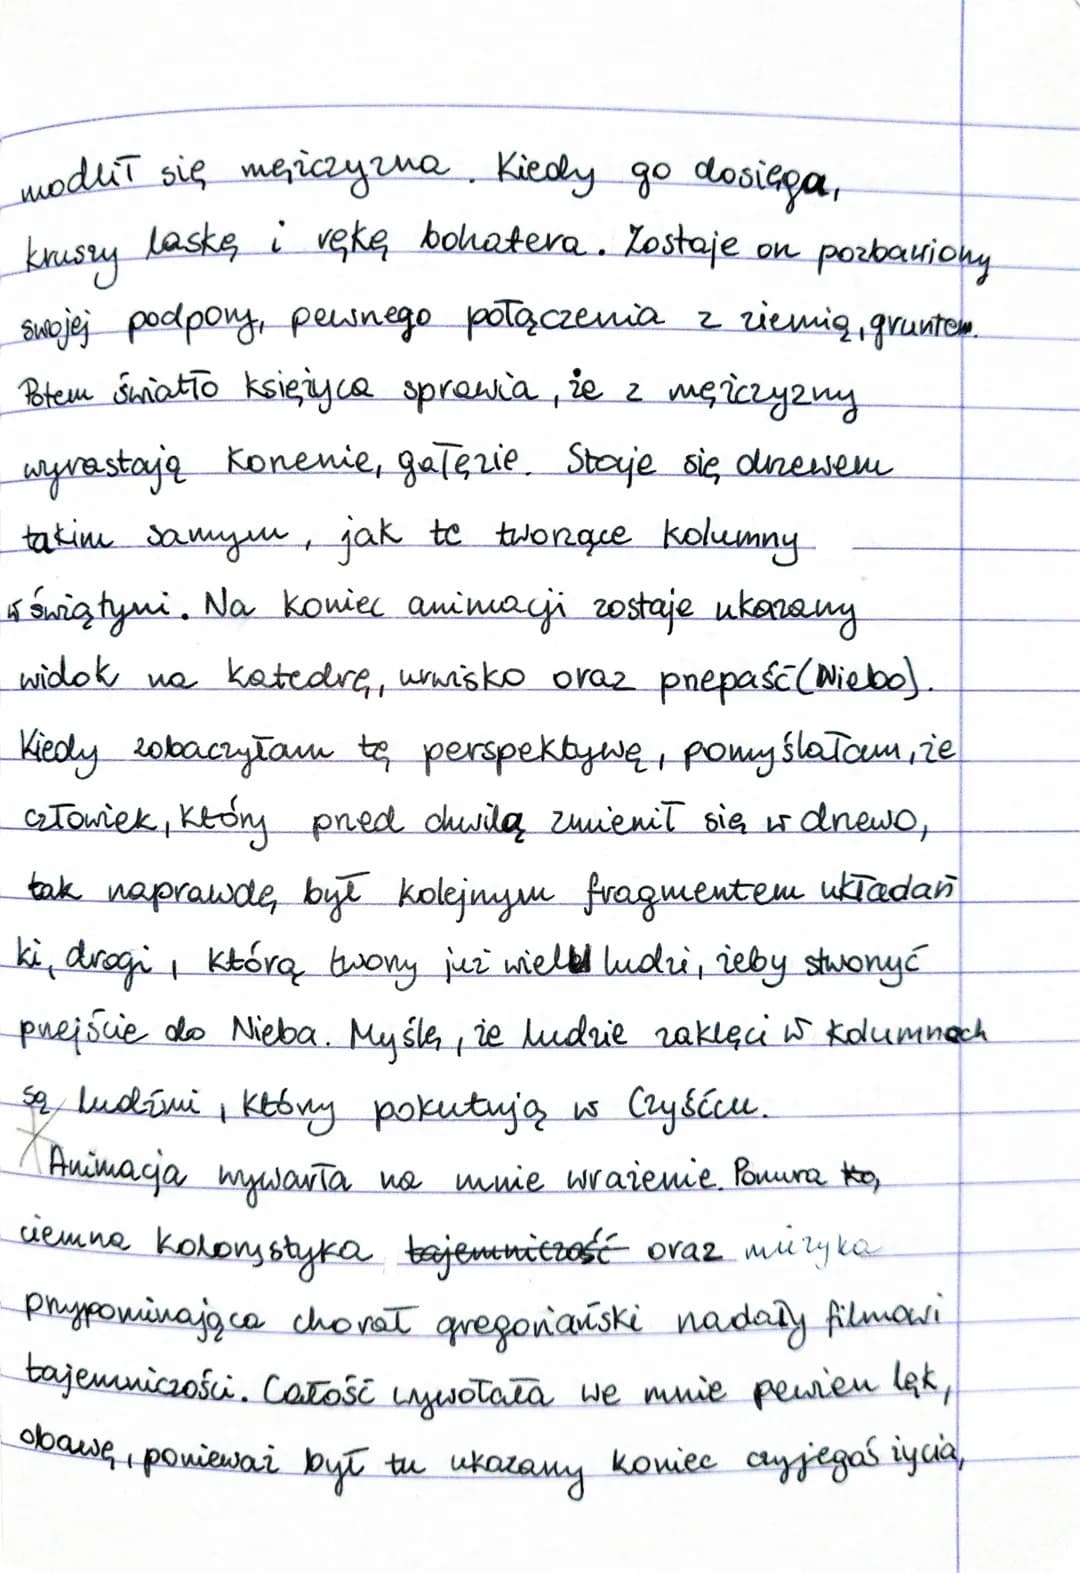 modlił się mężczyzna. Kiedy go dosięga,
kruszy laskę i rękę bohatera. Zostaje on pozbawiony
swojej podpory, pewnego połączenia z ziemią, gruntem.
Potem światło księżyca sprawia, że z mężczyzny
wyrastają korzenie, gałęzie. Staje się drzewem
takim samym, jak te tworzące kolumny
w świątyni. Na koniec animacji zostaje ukazany
widok na katedrę, urwisko oraz przepaść (Niebo).
Kiedy zobaczyłam tę perspektywę, pomyślałam, że
człowiek, który przed chwilą zmienił się w drzewo,
tak naprawdę był kolejnym fragmentem układan
ki, drogi, którą tworzy już wielu ludzi, żeby stworzyć
przejście do Nieba. Myślę, że ludzie zaklęci w kolumnach
są ludźmi, którzy pokutują w Czyśćcu.
Animacja wywarła na mnie wrażenie. Ponura ko,
ciemna kolorystyka tajemniczość oraz muzyka
przypominająca chorał gregoriański nadały filmowi
tajemniczości. Całość wywołała we mnie pewien lęk,
obawę, ponieważ był tu ukazany koniec czyjegoś życia,